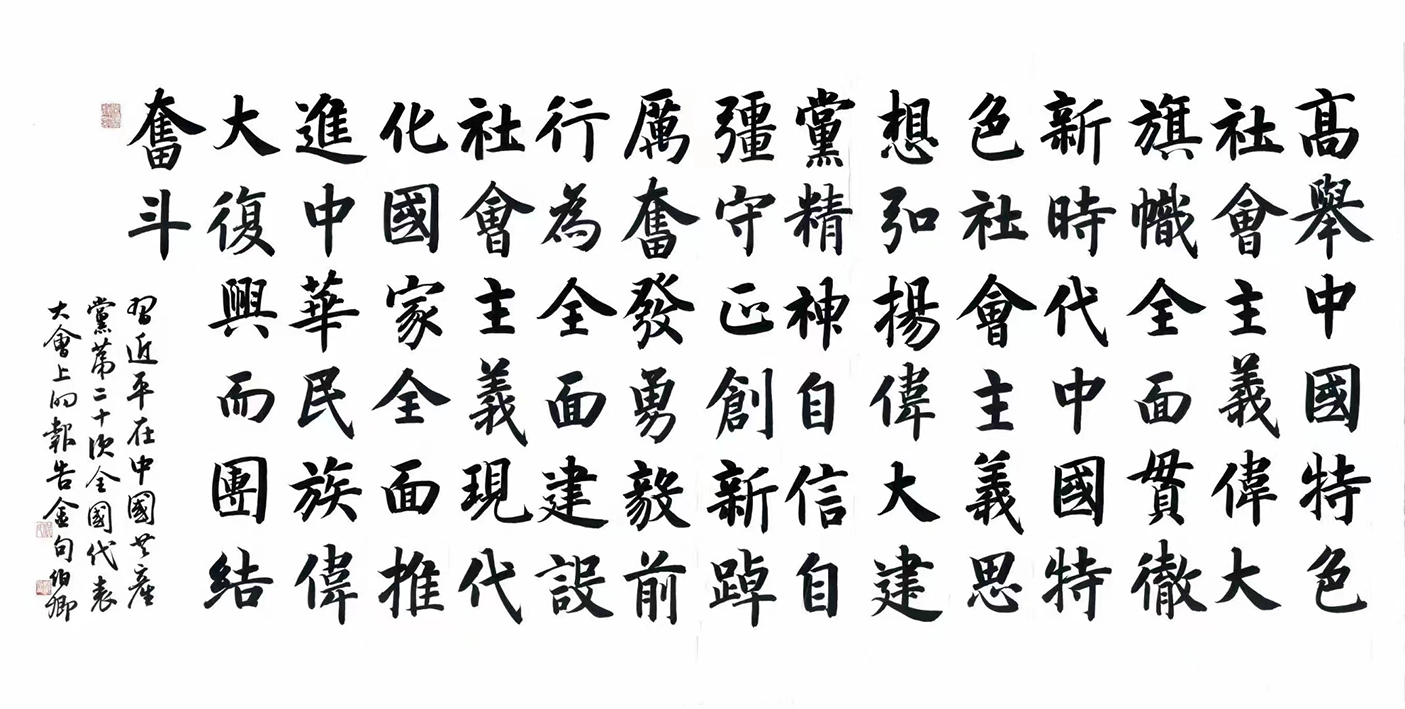 高舉中國特色
社會主義偉大
旗幟全面貫徹
新時代中國特
色社會主義思
想弘揚偉大建
黨精神自信自
彊守正創新踔
厲奮發勇毅前
行為全面建設
社會主義現代
化國家全面推
進中華民族偉
大復興而團結
奮斗
習近平在中國共產
黨第二十次全國代表
大會上的報告金句伯卿